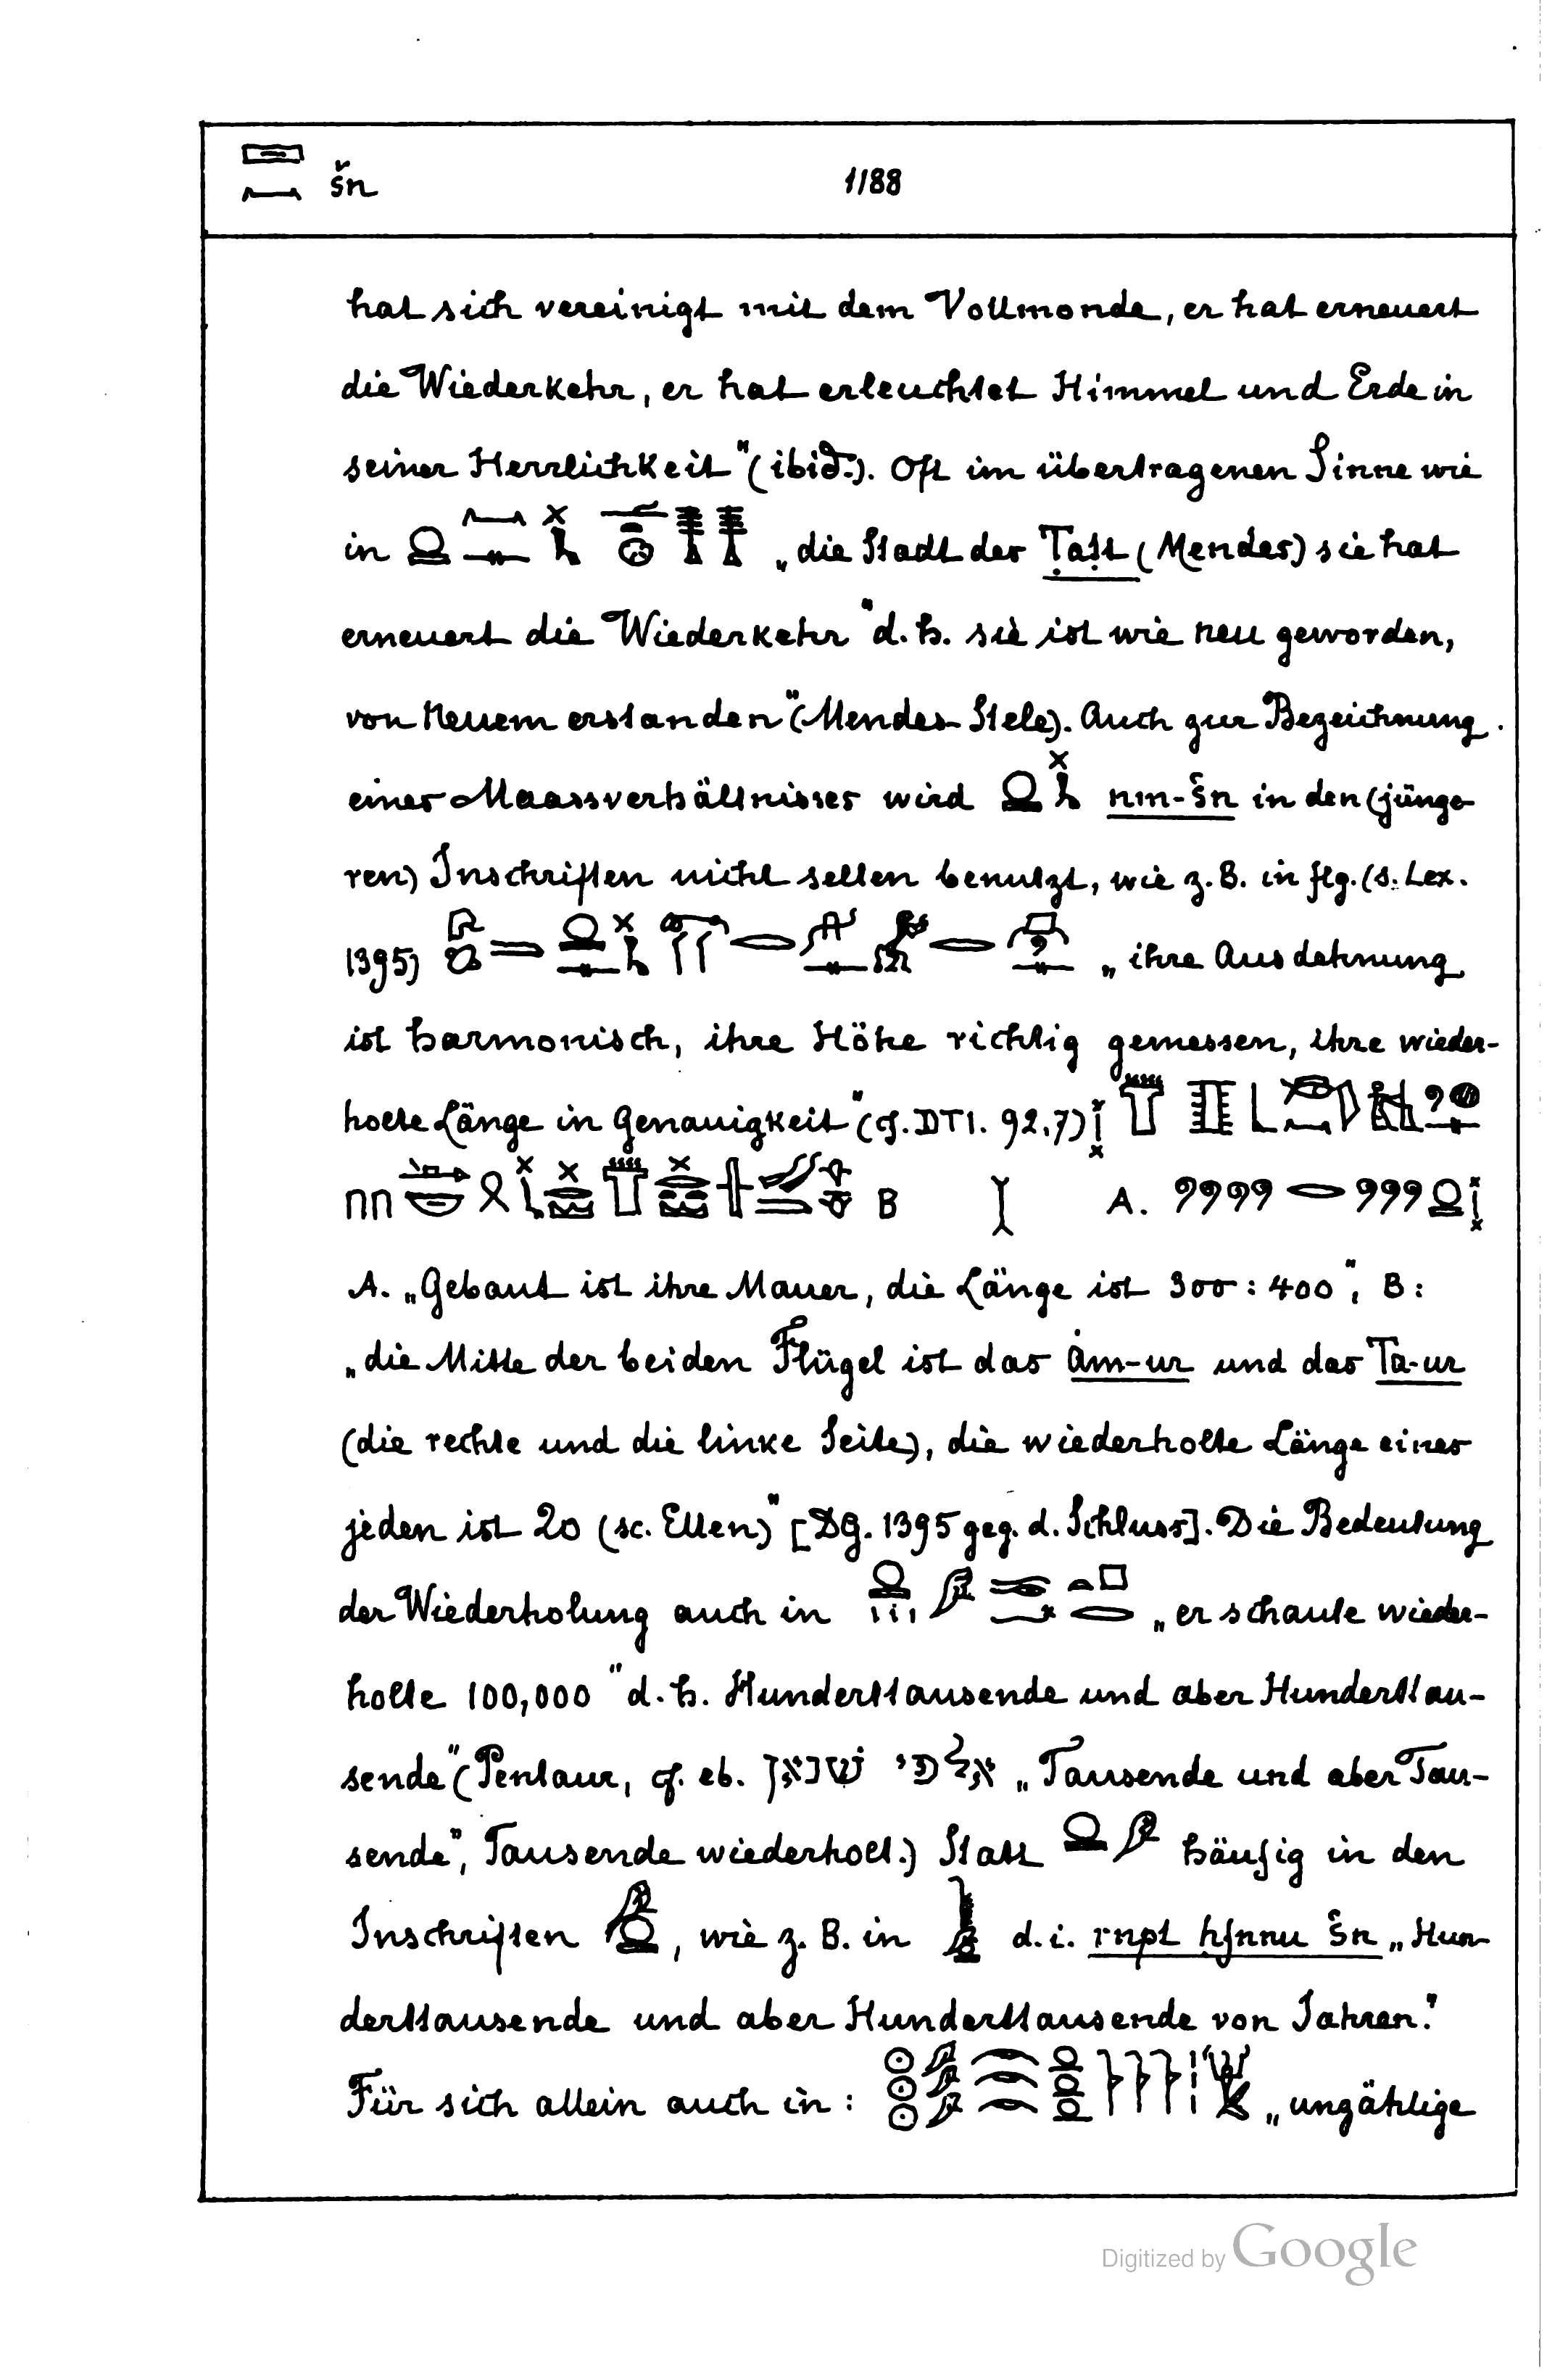 šn 1188
hat sich vereinigt mit dem Vollmonde, er hat erneuert
die Wiederkehr, er hat erleuchtet Himmel und Erde in
seiner Herrlichkeit" (ibid.). Oft im übertragenen Sinne wie
in „die Stadt der Ṭaṭṭ (Mendes) sie hat
erneuert die Wiederkehr" d. h. sie ist wie neu geworden,
von Neuem erstanden" (Mendes-Stele). Auch zur Bezeichnung
eines Maassverhältnisses wird nm-šn in den (jünge-
ren) Inschriften nicht selten benutzt, wie z. B. in flg. (s. Lex.
1395) „ihre Ausdehnung
ist harmonisch, ihre Höhe richtig gemessen, ihre wieder-
holte Länge in Genauigkeit" (cf. DTI. 92,7)
B A.
A. „Gebaut ist ihre Mauer, die Länge ist 300 : 400", B:
„die Mitte der beiden Flügel ist das ȧm-ur und das Ta-ur
(die rechte und die linke Seite), die wiederholte Länge eines
jeden ist 20 (sc. Ellen)" [DG. 1395 geg. d. Schluss]. Die Bedeutung
der Wiederholung auch in „er schaute wieder-
holte 100,000" d. h. Hunderttausende und aber Hunderttau-
sende" (Pentaur, cf. eb. „Tausende und aber Tau-
sende", Tausende wiederholt.) Statt häufig in den
Inschriften , wie z. B. in d. i. rnpt ḥfnnu šn „Hun-
derttausende und aber Hunderttausende von Jahren."
Für sich allein auch in: „unzählige
Digitized by Google